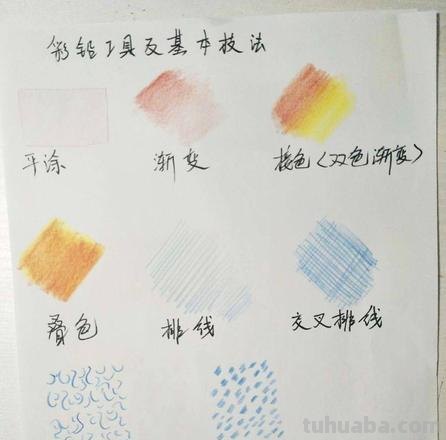 彩铅工具及基本技法
平涂 渐变 接色(双色渐变)
叠色 排线 交叉排线
tuhuaba.com